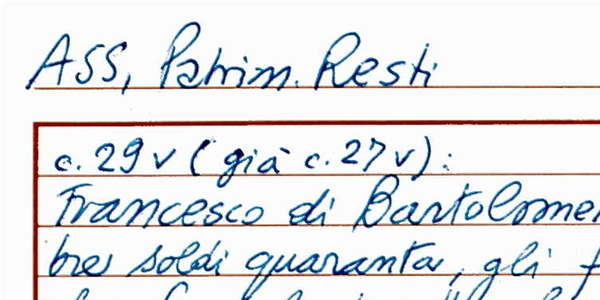 ASS, Patrim. Resti
c. 29 v (già c. 27 v):
Francesco di Bartolome
bre soldi quaranta, gli f